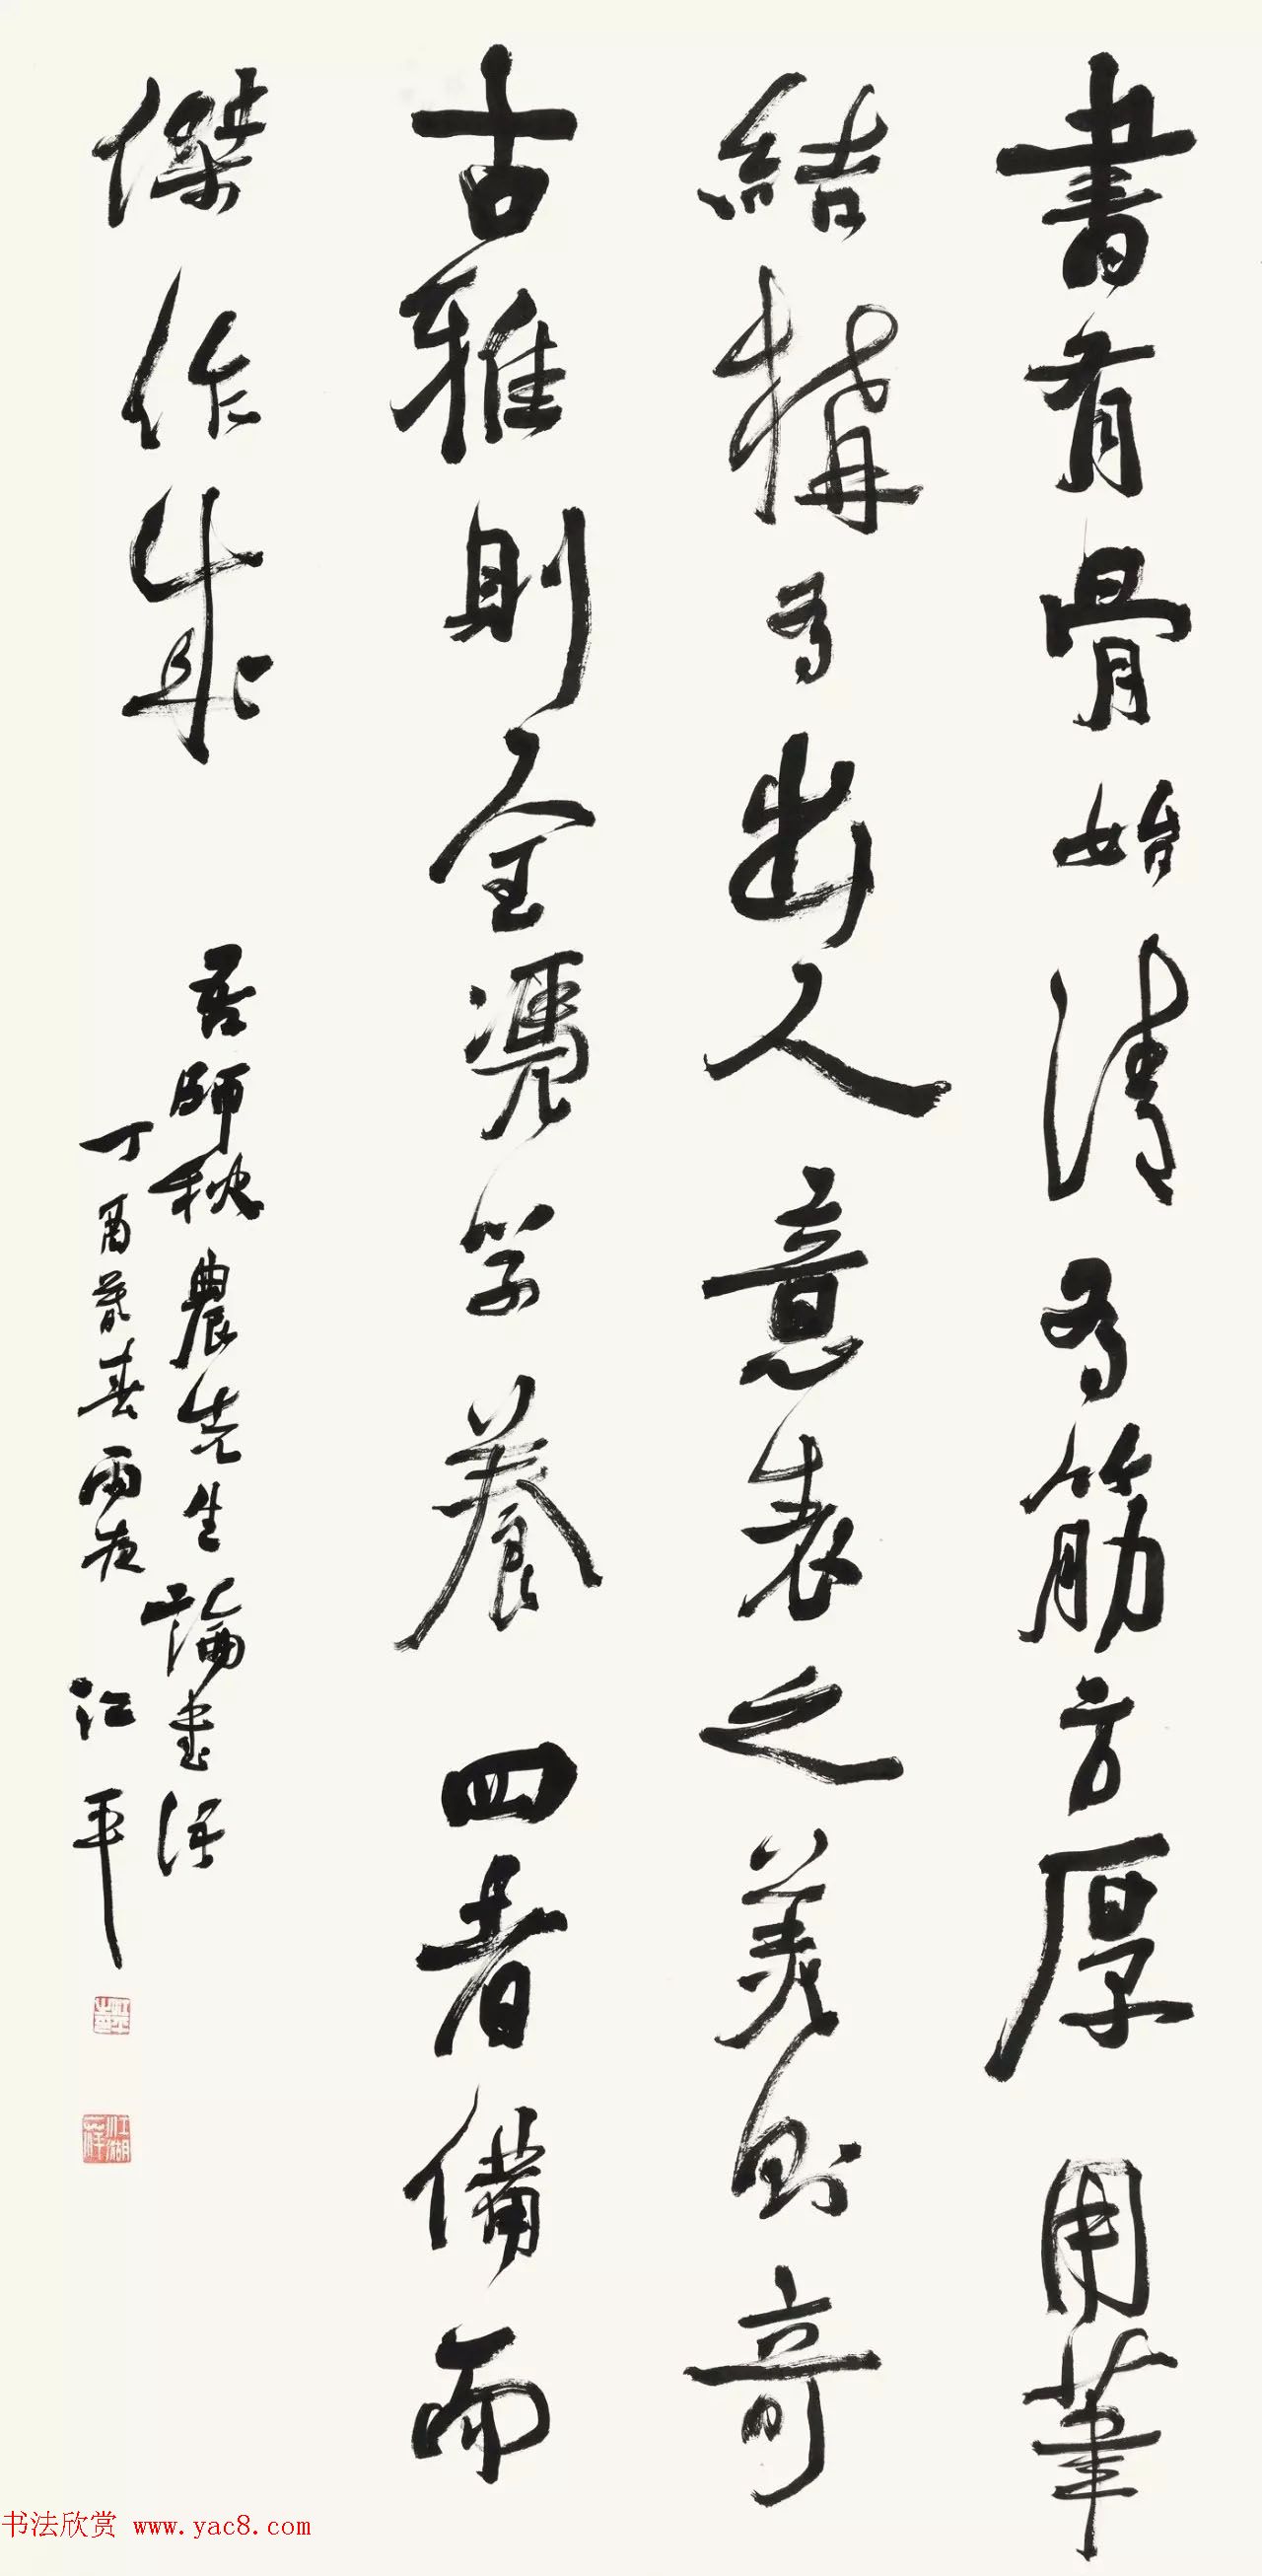 書有骨始清有筋方厚用筆
結構有出人意表之美則奇
古雅則全凴学養四者備而
傑作成
吾師秋農先生論書語
丁酉暮春雨夜江平
书法欣赏 www.yac8.com